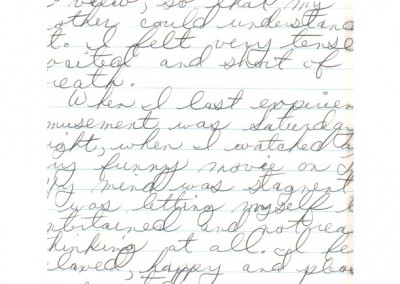 view, so that my
other could understand
t. I felt very tense
xcited and short of
reath.
When I last experien
musement was saturday
ight, when I watched a
ry funny movie on
My mind was stagnent
was letting myself
ntertained and not rea
thinking at all. I fe
laxed, happy and plea